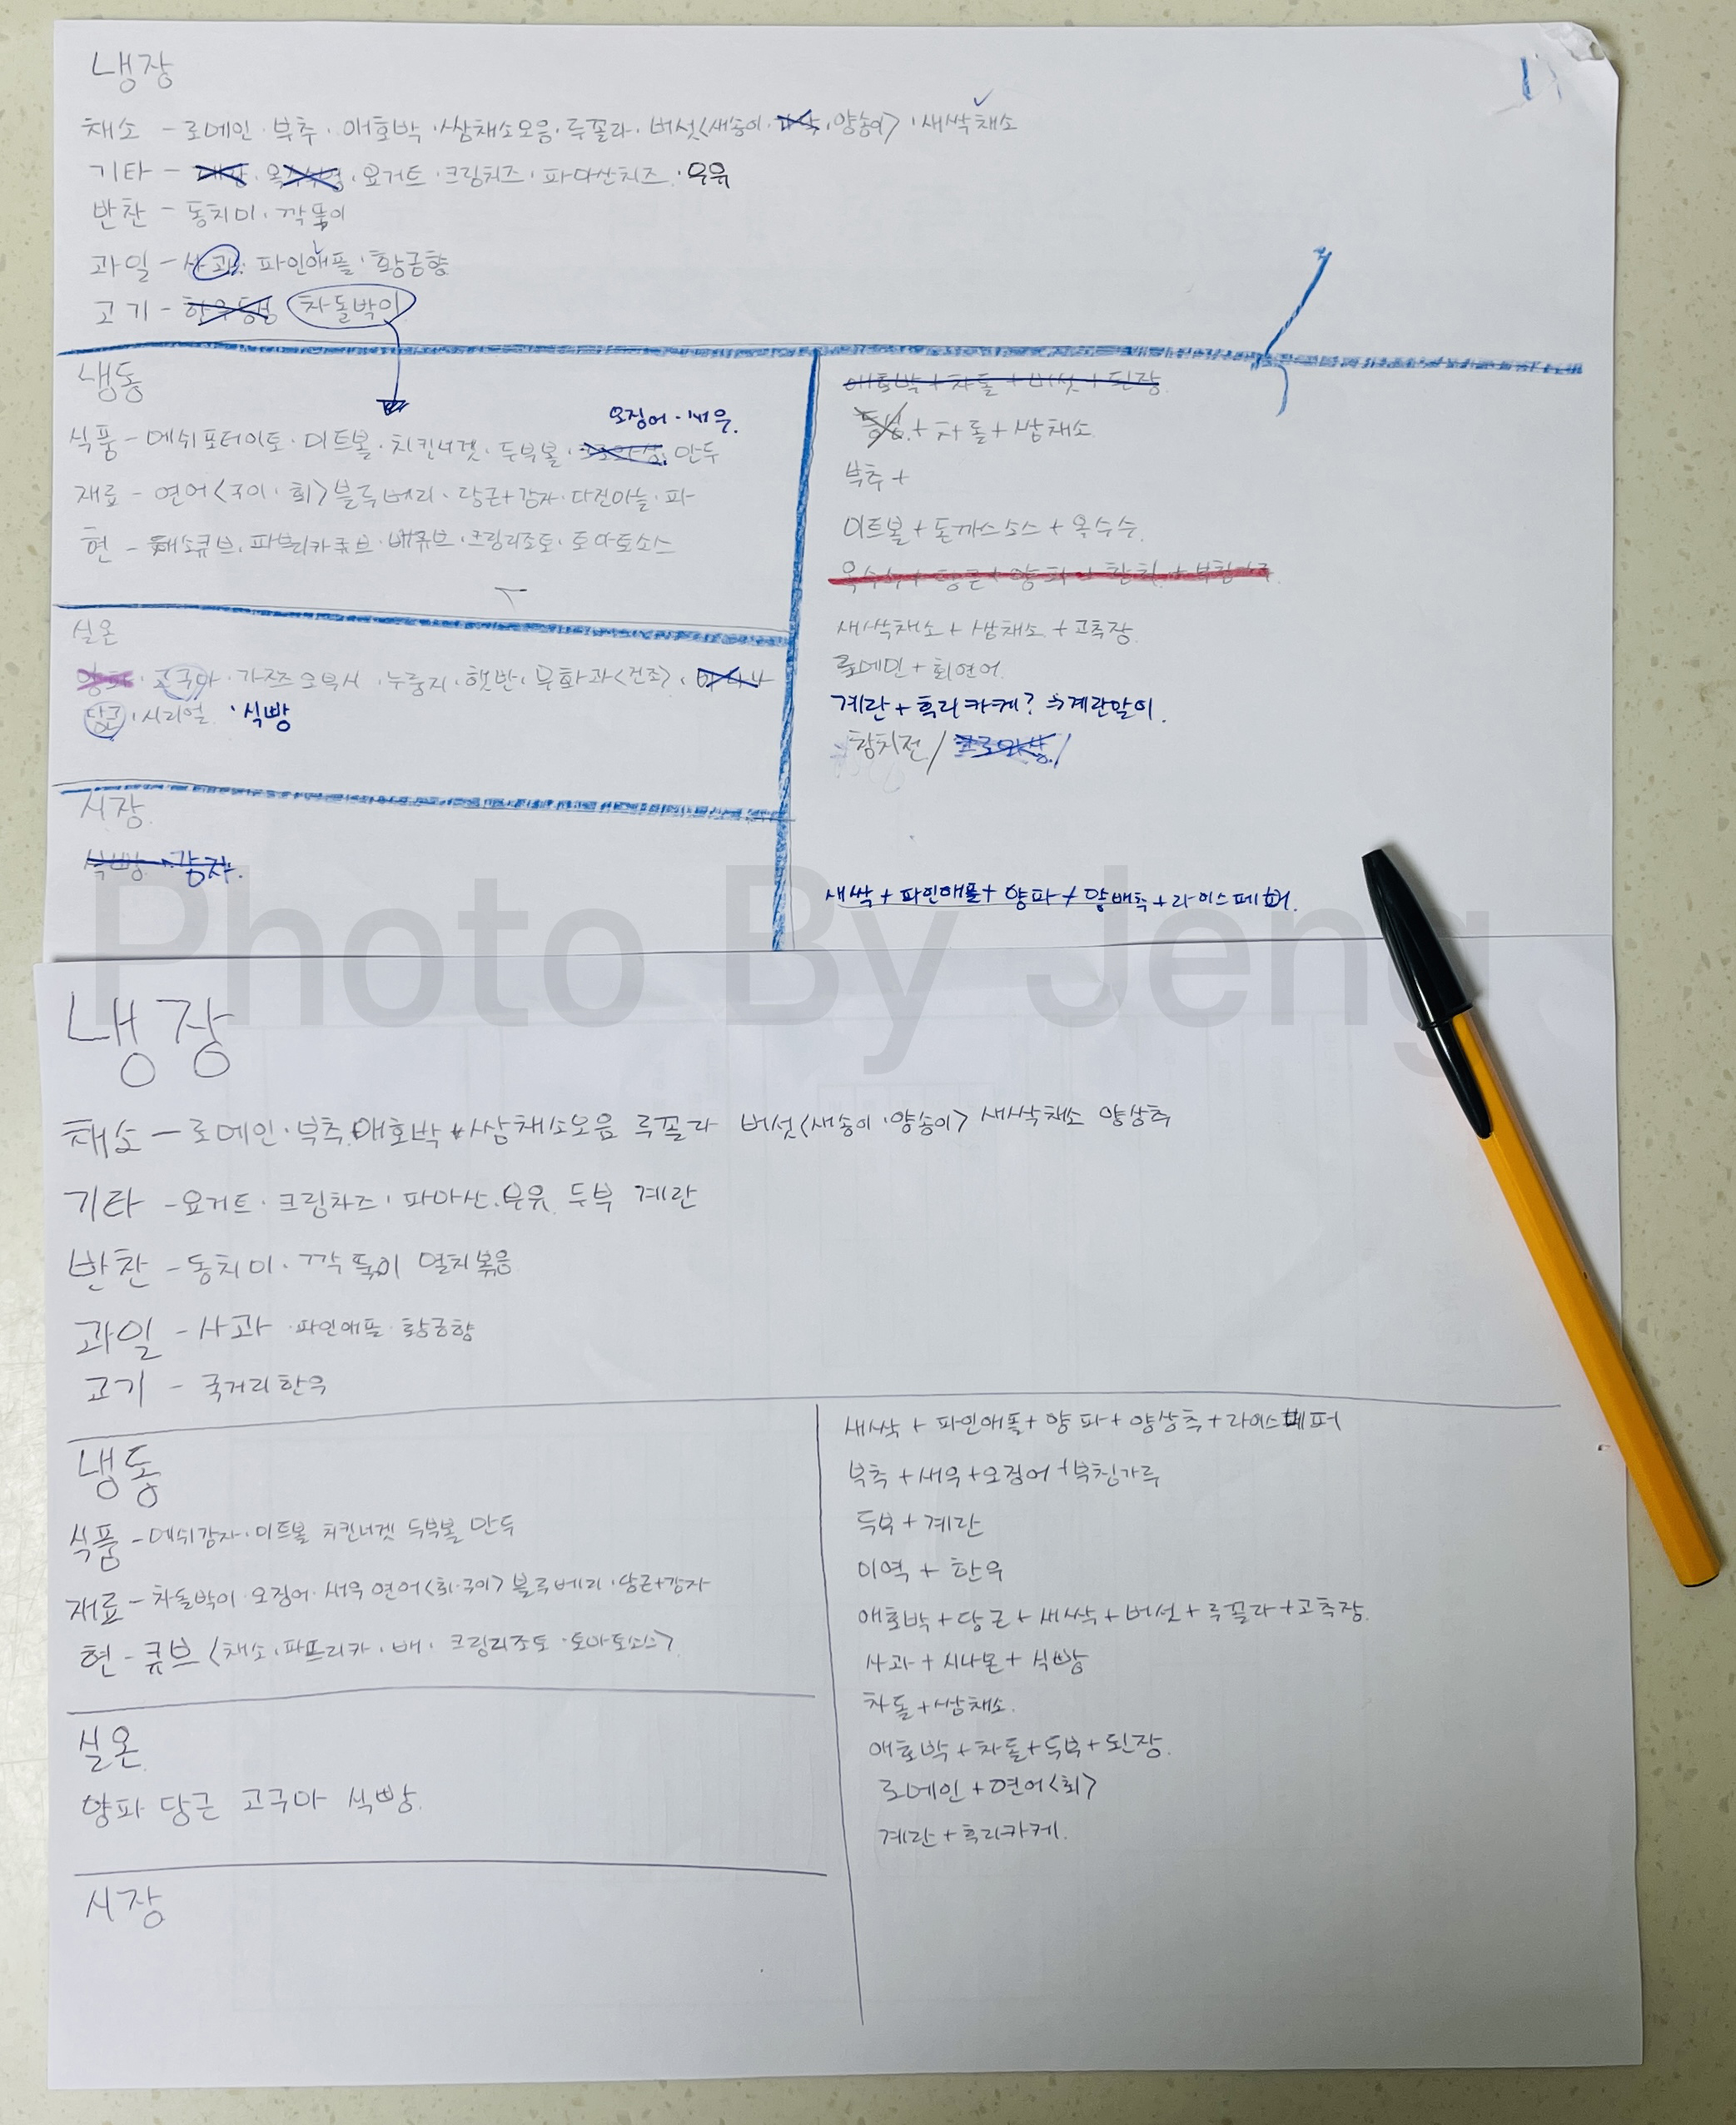 냉장
채소 - 로메인 · 부추 · 애호박 · 쌈채소모음 · 루꼴라 · 버섯<새송이 · 양송이> · 새싹채소
기타 - 요거트 · 크림치즈 · 파마산치즈 · 우유
반찬 - 동치미 · 깍뚝이
과일 - 사과 · 파인애플 · 황금향
고기 - 차돌박이
냉동
오징어 · 새우.
식품 - 메쉬포테이토 · 미트볼 · 치킨너겟 · 두부볼 · 만두
재료 - 연어<구이 · 회> 블루베리 · 당근+감자 · 다진마늘 · 파
현 - 채소큐브 · 파프리카큐브 · 배큐브 · 크림리조또 · 토마토소스
실온
고구마 · 가쯔오부시 · 누룽지 · 햇반 · 무화과<건조> ·
당근 · 시리얼 · 식빵
시장
식빵 · 감자.
애호박 + 차돌 + 버섯 + 된장
+ 차돌 + 쌈채소
부추 +
미트볼 + 돈까스소스 + 옥수수
옥수수 + 당근 + 양파 + 참치 +
새싹채소 + 쌈채소 + 고추장
로메인 + 회연어
계란 + 후리카케? → 계란말이.
참치전 / 크로와상 /
새싹 + 파인애플 + 양파 + 양배추 + 라이스페퍼.
Photo By Jeng
냉장
채소 - 로메인 · 부추 · 애호박 · 쌈채소모음 루꼴라 버섯<새송이 · 양송이> 새싹채소 양상추
기타 - 요거트 · 크림치즈 · 파마산 · 우유 두부 계란
반찬 - 동치미 · 깍뚝이 멸치볶음
과일 - 사과 · 파인애플 · 황금향
고기 - 국거리한우
냉동
식품 - 메쉬감자 · 미트볼 치킨너겟 두부볼 만두
재료 - 차돌박이 · 오징어 · 새우 연어<회 · 구이> 블루베리 · 당근+감자
현 - 큐브<채소 · 파프리카 · 배 · 크림리조또 · 토마토소스>
실온
양파 당근 고구마 식빵.
시장
새싹 + 파인애플 + 양파 + 양상추 + 라이스페퍼
부추 + 새우 + 오징어 + 부침가루
두부 + 계란
미역 + 한우
애호박 + 당근 + 새싹 + 버섯 + 루꼴라 + 고추장.
사과 + 시나몬 + 식빵
차돌 + 쌈채소.
애호박 + 차돌 + 두부 + 된장.
로메인 + 연어<회>
계란 + 후리카케.